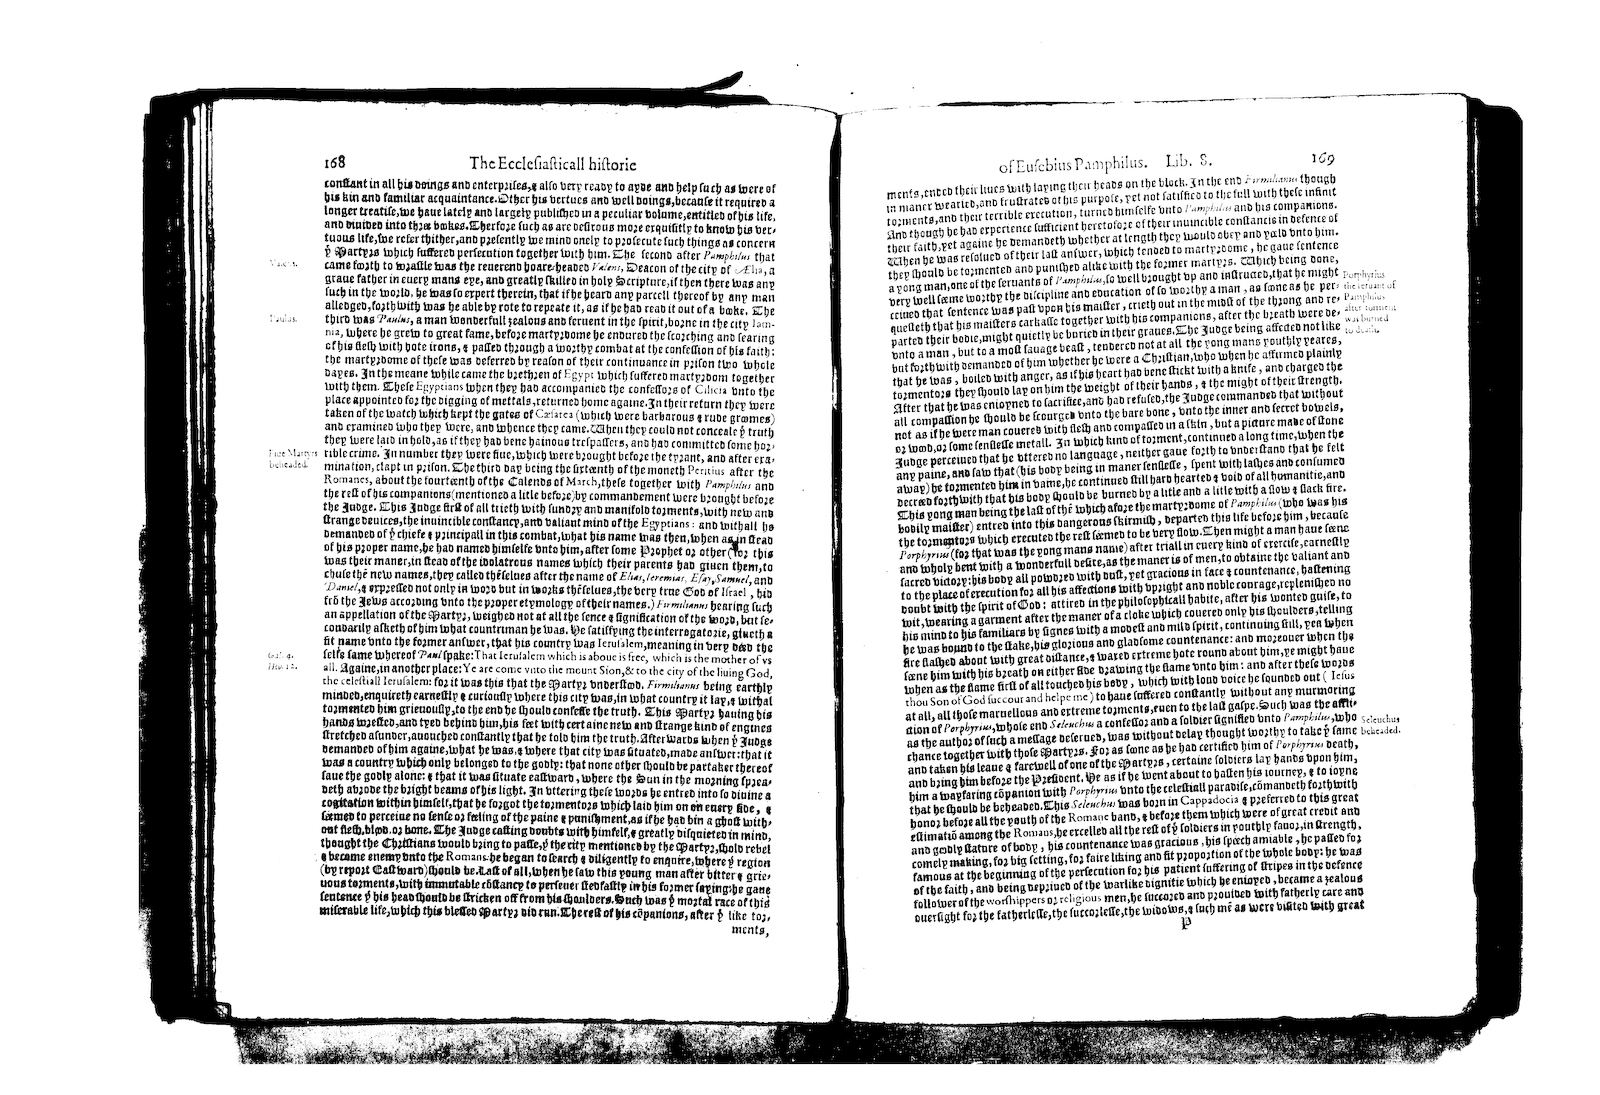 168 The Ecclesiasticall historie
constant in all his doings and enterprises, & also very ready to ayde and help such as were of
his kin and familiar acquaintance. Other his vertues and well doings, because it required a
longer treatise, we haue lately and largely published in a peculiar volume, entitled of his life,
and diuided into three bookes. Therfore such as are desirous more exquisitly to know his ver-
tuous life, we refer thither, and presently we mind onely to prosecute such things as concern
ẙ Martyrs which suffered persecution together with him. The second after Pamphilus that
Valens.
came forth to wrastle was the reuerend hoare-headed Valens, Deacon of the city of Ælia, a
graue father in euery mans eye, and greatly skilled in holy Scripture, if then there was any
such in the world. he was so expert therein, that if he heard any parcell thereof by any man
alledged, forthwith was he able by rote to repeate it, as if he had read it out of a booke. The
Paulus.
third was Paulus, a man wonderfull zealous and feruent in the spirit, borne in the city Iam-
nia, where he grew to great fame, before martyrdome he endured the scorching and searing
of his flesh with hote irons, & passed through a worthy combat at the confession of his faith:
the martyrdome of these was deferred by reason of their continuance in prison two whole
dayes. In the meane while came the brethren of Egypt which suffered martyrdom together
with them. These Egyptians when they had accompanied the confessors of Cilicia vnto the
place appointed for the digging of mettals, returned home againe. In their return they were
taken of the watch which kept the gates of Cæsarea (which were barbarous & rude groomes)
and examined who they were, and whence they came. When they could not conceale ẙ truth
they were laid in hold, as if they had bene hainous trespassers, and had committed some hor-
Fiue Martyrs
beheaded.
rible crime. In number they were fiue, which were brought before the tyrant, and after exa-
mination, clapt in prison. The third day being the sixteenth of the moneth Peritius after the
Romanes, about the fourteenth of the Calends of March, these together with Pamphilus and
the rest of his companions (mentioned a litle before) by commandement were brought before
the Judge. This Judge first of all trieth with sundry and manifold torments, with new and
strange deuices, the inuincible constancy, and valiant mind of the Egyptians: and withall he
demanded of ẙ chiefe & principall in this combat, what his name was then, when as in stead
of his proper name, he had named himselfe vnto him, after some Prophet or other (for this
was their maner, in stead of the idolatrous names which their parents had giuen them, to
chuse thē new names, they called thēselues after the name of Elias, Ieremias, Esay, Samuel, and
Daniel, & expressed not only in word but in works thēselues, the very true God of Israel, hid
frō the Jews according vnto the proper etymology of their names.) Firmilianus hearing such
an appellation of the Martyr, weighed not at all the sence & signification of the word, but se-
condarily asketh of him what countriman he was. He satisfying the interrogatorie, giueth a
fit name vnto the former answer, that his country was Ierusalem, meaning in very deed the
Gal. 4.
selfe same whereof Paul spake: That Ierusalem which is aboue is free, which is the mother of vs
Heb. 12.
all. Againe, in another place: Ye are come vnto the mount Sion, & to the city of the liuing God,
the celestiall Ierusalem: for it was this that the Martyr vnderstood. Firmilianus being earthly
minded, enquireth earnestly & curiously where this city was, in what country it lay, & withal
tormented him grieuously, to the end he should confesse the truth. This Martyr hauing his
hands wrested, and tyed behind him, his feet with certaine new and strange kind of engines
stretched asunder, auouched constantly that he told him the truth. Afterwards when ẙ Judge
demanded of him againe, what he was, & where that city was situated, made answer: that it
was a country which only belonged to the godly: that none other should be partaker thereof
saue the godly alone: & that it was situate eastward, where the Sun in the morning sprea-
deth abrode the bright beams of his light. In vttering these words he entred into so diuine a
cogitation within himself, that he forgot the tormentors which laid him on on euery side, &
seemed to perceiue no sense or feeling of the paine & punishment, as if he had bin a ghost with-
out flesh, blood, or bone. The Judge casting doubts with himself, & greatly disquieted in mind,
thought the Christians would bring to passe, ẙ the city mentioned by the Martyr, shold rebel
& became enemy vnto the Romans. he began to search & diligently to enquire, where ẙ region
(by report Eastward) should be. Last of all, when he saw this young man after bitter & grie-
uous torments, with immutable cōstancy to perseuer stedfastly in his former saying: he gaue
sentence ẙ his head should be stricken off from his shoulders. Such was ẙ mortal race of this
miserable life, which this blessed Martyr did run. The rest of his cōpanions, after ẙ like tor-
ments,
of Eusebius Pamphilus. Lib. 8. 169
ments, ended their liues with laying their heads on the block. In the end Firmilianus though
in maner wearied, and frustrated of his purpose, yet not satisfied to the full with these infinit
torments, and their terrible execution, turned himselfe vnto Pamphilus and his companions.
And though he had experience sufficient heretofore of their inuincible constancie in defence of
their faith, yet againe he demandeth whether at length they would obey and yeeld vnto him.
When he was resolued of their last answer, which tended to martyrdome, he gaue sentence
they should be tormented and punished alike with the former martyrs. Which being done,
a yong man, one of the seruants of Pamphilus, so well brought vp and instructed, that he might
Porphyrius
the seruant of
Pamphilus
after torment
was burned
to death.
very well seeme worthy the discipline and education of so worthy a man, as soone as he per-
ceiued that sentence was past vpon his maister, crieth out in the midst of the throng and re-
questeth that his maisters carkasse together with his companions, after the breath were de-
parted their bodie, might quietly be buried in their graues. The Judge being affected not like
vnto a man, but to a most sauage beast, tendered not at all the yong mans youthly yeares,
but forthwith demanded of him whether he were a Christian, who when he affirmed plainly
that he was, boiled with anger, as if his heart had bene stickt with a knife, and charged the
tormentors they should lay on him the weight of their hands, & the might of their strength.
After that he was enioyned to sacrifice, and had refused, the Judge commanded that without
all compassion he should be scourged vnto the bare bone, vnto the inner and secret bowels,
not as if he were man couered with flesh and compassed in a skin, but a picture made of stone
or wood, or some senslesse metall. In which kind of torment, continued a long time, when the
Judge perceiued that he vttered no language, neither gaue forth to vnderstand that he felt
any paine, and saw that (his body being in maner senslesse, spent with lashes and consumed
away) he tormented him in vaine, he continued still hard hearted & void of all humanitie, and
decreed forthwith that his body should be burned by a litle and a litle with a slow & slack fire.
This yong man being the last of thē which afore the martyrdome of Pamphilus (who was his
bodily maister) entred into this dangerous skirmish, departed this life before him, because
the tormentors which executed the rest seemed to be very slow. Then might a man haue seene
Porphyrius (for that was the yong mans name) after triall in euery kind of exercise, earnestly
and wholy bent with a wonderfull desire, as the maner is of men, to obtaine the valiant and
sacred victory: his body all powdred with dust, yet gracious in face & countenance, hastening
to the place of execution for all his affections with vpright and noble courage, replenished no
doubt with the spirit of God: attired in the philosophicall habite, after his wonted guise, to
wit, wearing a garment after the maner of a cloke which couered only his shoulders, telling
his mind to his familiars by signes with a modest and mild spirit, continuing still, yea when
he was bound to the stake, his glorious and gladsome countenance: and moreouer when the
fire flashed about with great distance, & waxed extreme hote round about him, ye might haue
seene him with his breath on either side drawing the flame vnto him: and after these words
when as the flame first of all touched his body, which with loud voice he sounded out (Iesus
thou Son of God succour and helpe me) to haue suffered constantly without any murmoring
at all, all those maruellous and extreme torments, euen to the last gaspe. Such was the afflic-
Seleuchus
beheaded.
ction of Porphyrius, whose end Seleuchus a confessor and a soldier signified vnto Pamphilus, who
as the author of such a message deserued, was without delay thought worthy to take ẙ same
chance together with those Martyrs. For as soone as he had certified him of Porphyrius death,
and taken his leaue & farewell of one of the Martyrs, certaine soldiers lay hands vpon him,
and bring him before the President. He as if he went about to hasten his iourney, & to ioyne
him a wayfaring cōpanion with Porphyrius vnto the celestiall paradise, cōmandeth forthwith
that he should be beheaded. This Seleuchus was born in Cappadocia & preferred to this great
honor before all the youth of the Romane band, & before them which were of great credit and
estimatiō among the Romans, he excelled all the rest of ẙ soldiers in youthly fauor, in strength,
and goodly stature of body, his countenance was gracious, his speech amiable, he passed for
comely making, for big setting, for faire liking and fit proportion of the whole body: he was
famous at the beginning of the persecution for his patient suffering of stripes in the defence
of the faith, and being depriued of the warlike dignitie which he enioyed, became a zealous
follower of the worshippers or religious men, he succored and prouided with fatherly care and
ouersight for the fatherlesse, the succorlesse, the widows, & such mē as were visited with great
P